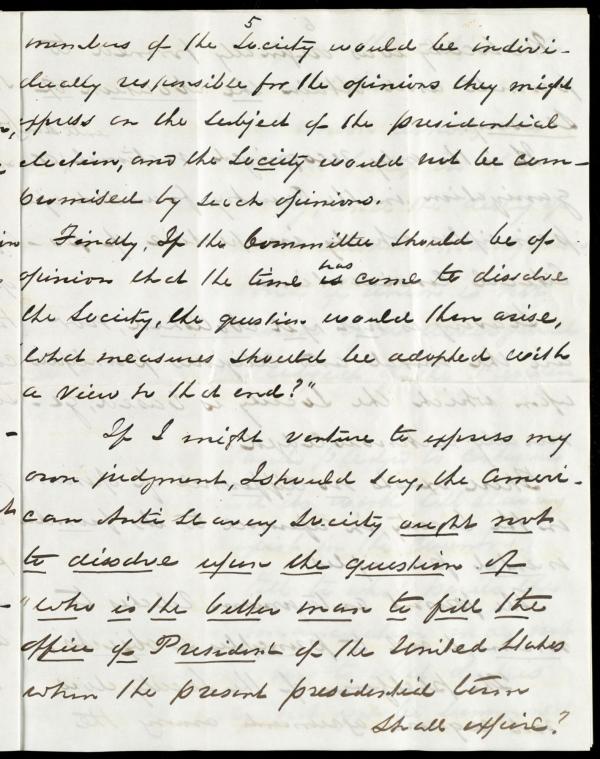 5
members of the Society would be indivi-
dually responsible for the opinions they might
express on the subject of the presidential
election, and the Society would not be com-
promised by such opinions.
Finally, If the Committee should be of
opinion that the time is has come to dissolve
the Society, the question would then arise,
what measures should be adopted with
a view to that end?"
If I might venture to express my
own judgment, I should say, the Ameri-
can Anti Slavery Society ought not
to dissolve upon the question of
"who is the better man to fill the
office of President of the United States
when the present presidential term
shall expire?